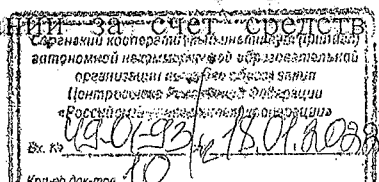 нии за счет средств
Саранский кооперативный институт (филиал)
автономной некоммерческой образовательной
организации высшего образования
Центросоюза Российской Федерации
«Российский университет кооперации»
Вх. № 49-01-93 18.01.2022
Кол-во док-тов 10